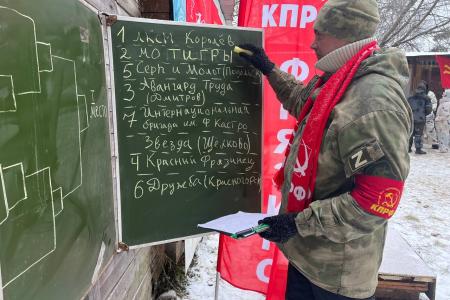 1 ЛКСМ Королёв
2 МО ТИГРЫ
5 Серп и Молот
3 Авангард Труда
(Дмитров)
7 Интернациональная
бригада им. Ф Кастро
Звезда (Щелково)
4 Красный Фрязинец
6 Дружба (Красногорск)
I место
КПРФ
КПРФ
Z
КПРФ